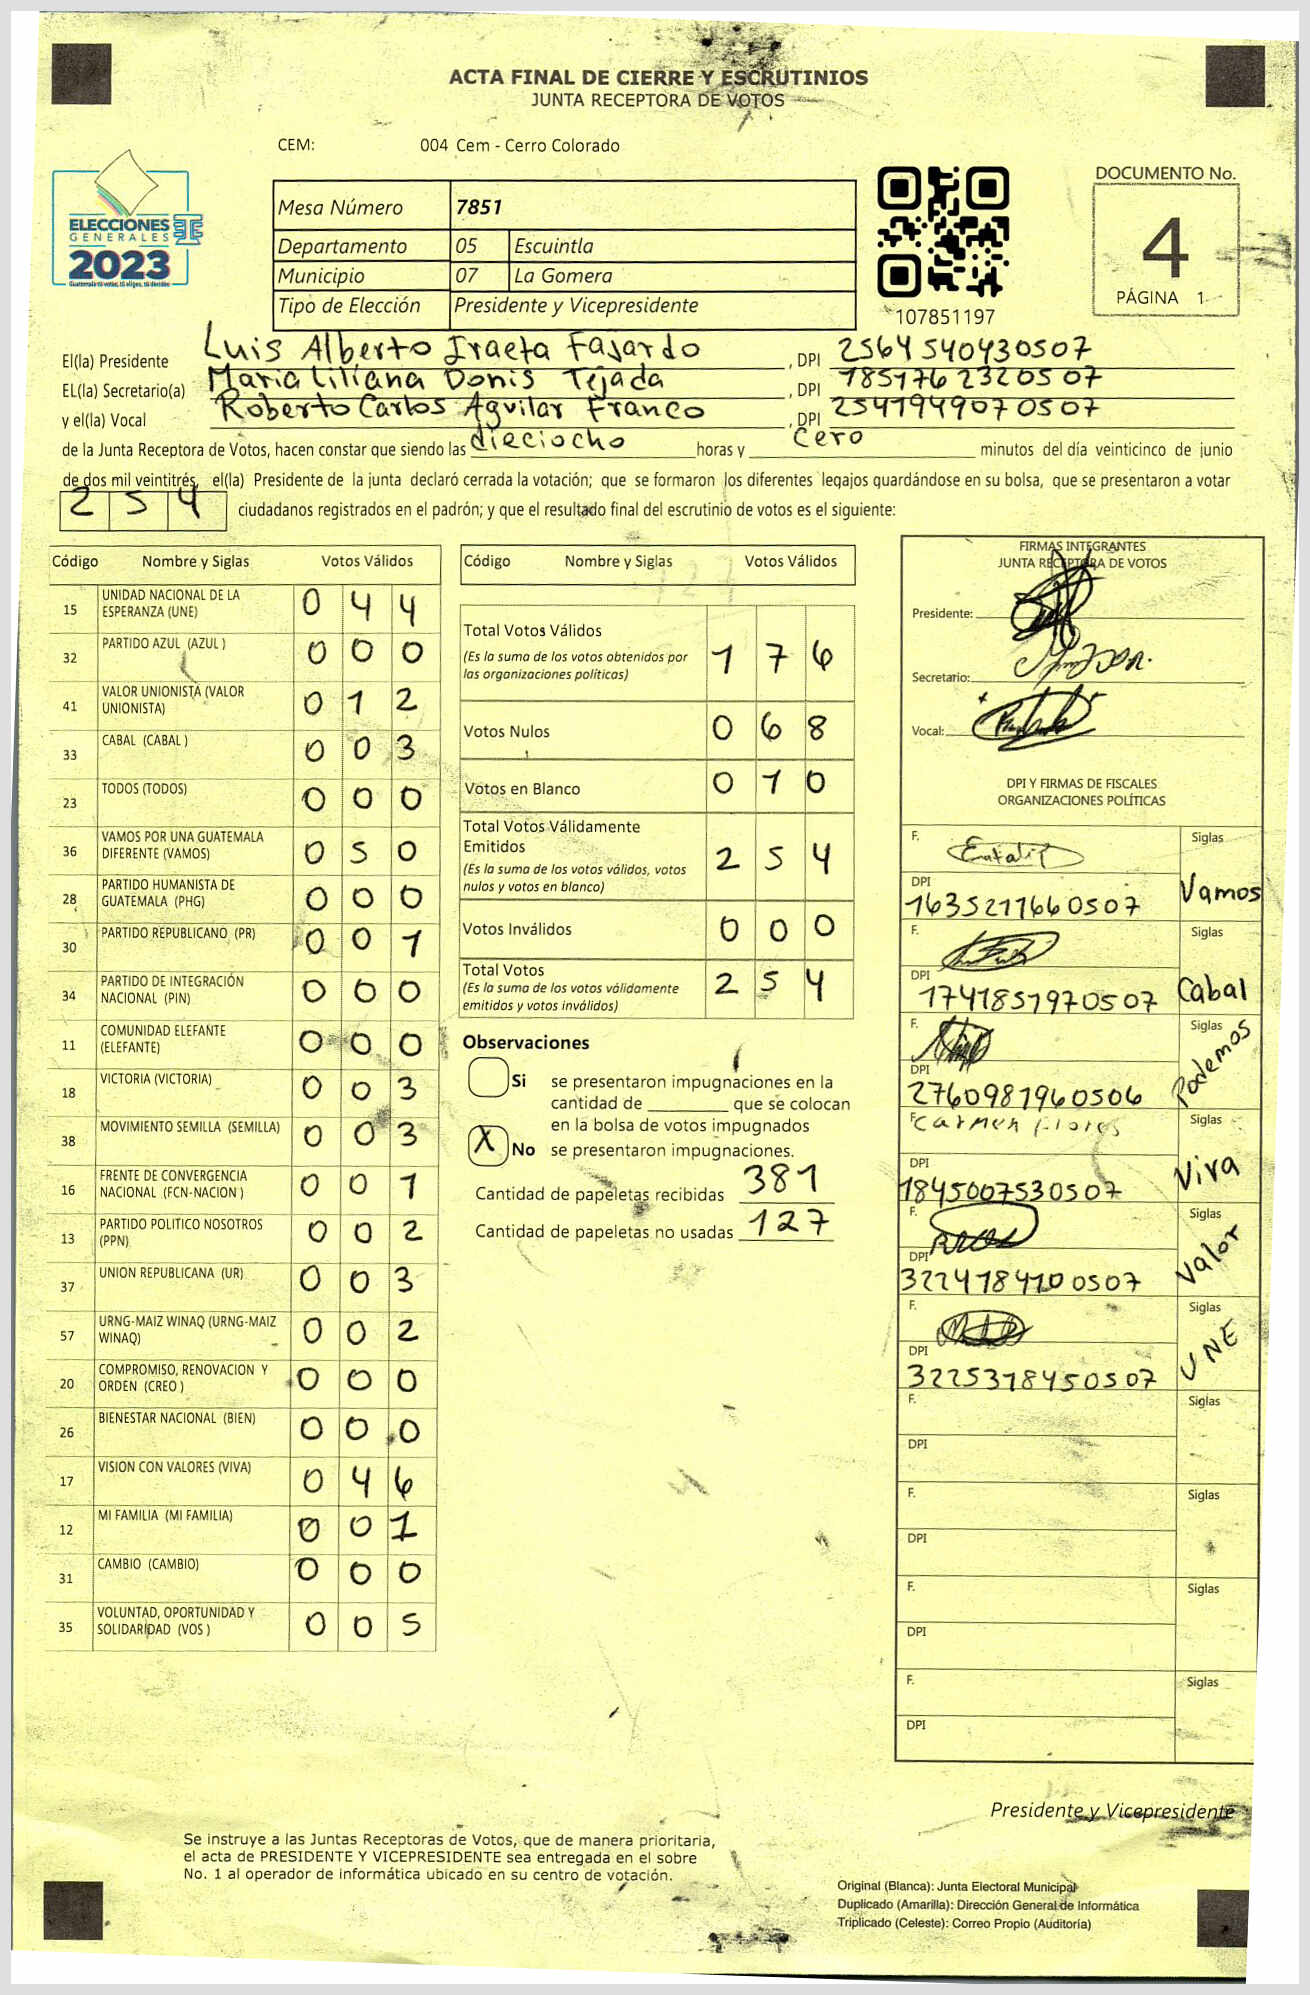 ACTA FINAL DE CIERRE Y ESCRUTINIOS
JUNTA RECEPTORA DE VOTOS
CEM: 004 Cem - Cerro Colorado
ELECCIONES
GENERALES
2023
Guatemala tú votas, tú eliges, tú decides
Mesa Número 7851
Departamento 05 Escuintla
Municipio 07 La Gomera
Tipo de Elección Presidente y Vicepresidente
107851197
DOCUMENTO No.
4
PÁGINA 1
El(la) Presidente Luis Alberto Iraeta Fajardo , DPI 2564540430507
EL(la) Secretario(a) Maria Liliana Donis Tejada , DPI 1851762320507
y el(la) Vocal Roberto Carlos Aguilar Franco , DPI 2541949070507
de la Junta Receptora de Votos, hacen constar que siendo las dieciocho horas y cero minutos del día veinticinco de junio
de dos mil veintitrés, el(la) Presidente de la junta declaró cerrada la votación; que se formaron los diferentes legajos guardándose en su bolsa, que se presentaron a votar
2 5 4 ciudadanos registrados en el padrón; y que el resultado final del escrutinio de votos es el siguiente:
Código Nombre y Siglas Votos Válidos
15 UNIDAD NACIONAL DE LA
ESPERANZA (UNE) 0 4 4
32 PARTIDO AZUL (AZUL ) 0 0 0
41 VALOR UNIONISTA (VALOR
UNIONISTA) 0 1 2
33 CABAL (CABAL ) 0 0 3
23 TODOS (TODOS) 0 0 0
36 VAMOS POR UNA GUATEMALA
DIFERENTE (VAMOS) 0 5 0
28 PARTIDO HUMANISTA DE
GUATEMALA (PHG) 0 0 0
30 PARTIDO REPUBLICANO (PR) 0 0 1
34 PARTIDO DE INTEGRACIÓN
NACIONAL (PIN) 0 0 0
11 COMUNIDAD ELEFANTE
(ELEFANTE) 0 0 0
18 VICTORIA (VICTORIA) 0 0 3
38 MOVIMIENTO SEMILLA (SEMILLA) 0 0 3
16 FRENTE DE CONVERGENCIA
NACIONAL (FCN-NACION ) 0 0 1
13 PARTIDO POLITICO NOSOTROS
(PPN) 0 0 2
37 UNION REPUBLICANA (UR) 0 0 3
57 URNG-MAIZ WINAQ (URNG-MAIZ
WINAQ) 0 0 2
20 COMPROMISO, RENOVACION Y
ORDEN (CREO ) 0 0 0
26 BIENESTAR NACIONAL (BIEN) 0 0 0
17 VISION CON VALORES (VIVA) 0 4 6
12 MI FAMILIA (MI FAMILIA) 0 0 1
31 CAMBIO (CAMBIO) 0 0 0
35 VOLUNTAD, OPORTUNIDAD Y
SOLIDARIDAD (VOS ) 0 0 5
Código Nombre y Siglas Votos Válidos
Total Votos Válidos
(Es la suma de los votos obtenidos por
las organizaciones políticas) 1 7 6
Votos Nulos 0 6 8
Votos en Blanco 0 1 0
Total Votos Válidamente
Emitidos
(Es la suma de los votos válidos, votos
nulos y votos en blanco) 2 5 4
Votos Inválidos 0 0 0
Total Votos
(Es la suma de los votos válidamente
emitidos y votos inválidos) 2 5 4
Observaciones
Si se presentaron impugnaciones en la
cantidad de ________ que se colocan
en la bolsa de votos impugnados
X No se presentaron impugnaciones.
Cantidad de papeletas recibidas 381
Cantidad de papeletas no usadas 127
FIRMAS INTEGRANTES
JUNTA RECEPTORA DE VOTOS
Presidente:
Secretario:
Vocal:
DPI Y FIRMAS DE FISCALES
ORGANIZACIONES POLÍTICAS
F. Siglas
DPI
1635211660507 Vamos
F. Siglas
DPI
1741851970507 Cabal
F. Siglas
DPI
2760981960506 Podemos
F. Carmen Flores Siglas
DPI
1845007530507 Viva
F. Siglas
DPI
3224184100507 Valor
F. Siglas
DPI
3225318450507 UNE
F. Siglas
DPI
F. Siglas
DPI
F. Siglas
DPI
F. Siglas
DPI
Presidente y Vicepresidente
Se instruye a las Juntas Receptoras de Votos, que de manera prioritaria,
el acta de PRESIDENTE Y VICEPRESIDENTE sea entregada en el sobre
No. 1 al operador de informática ubicado en su centro de votación.
Original (Blanca): Junta Electoral Municipal
Duplicado (Amarilla): Dirección General de Informática
Triplicado (Celeste): Correo Propio (Auditoría)